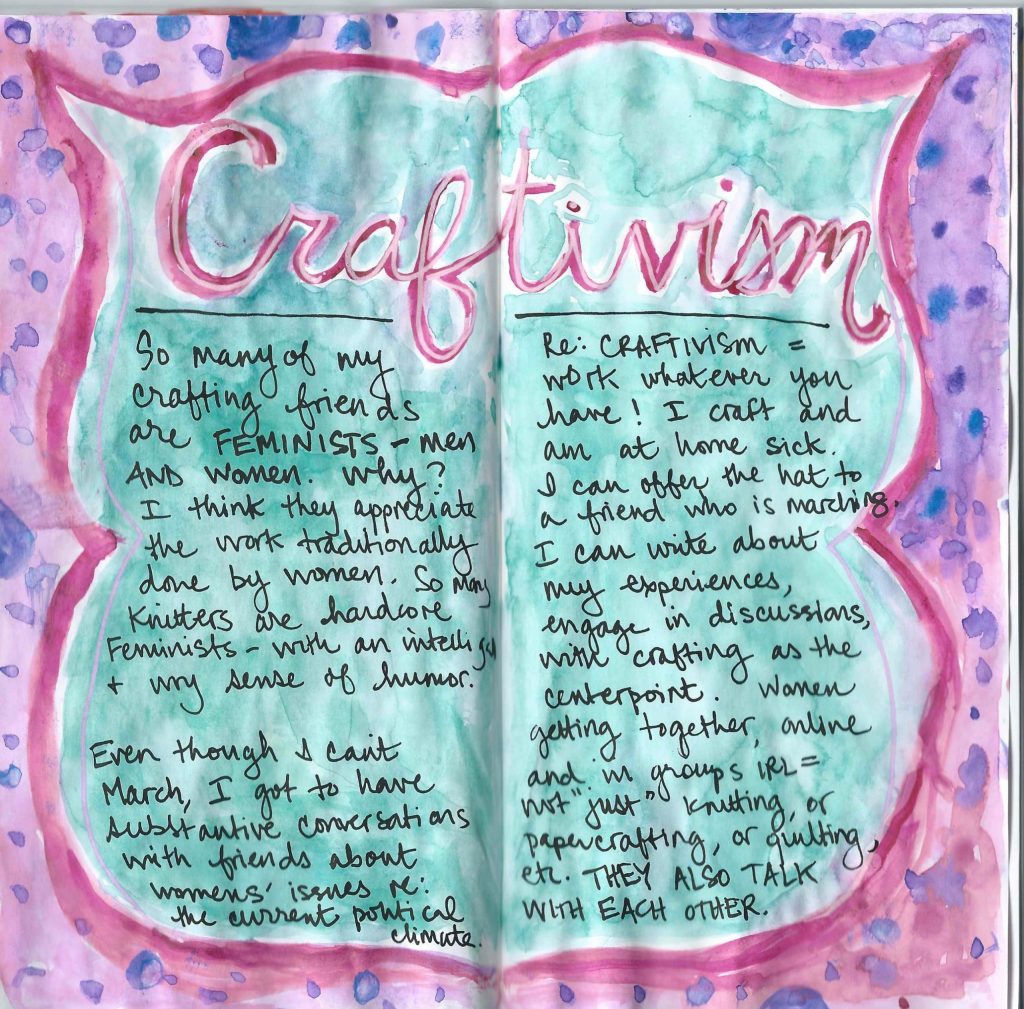 Craftivism
So many of my
crafting friends
are FEMINISTS - men
AND women. Why?
I think they appreciate
the work traditionally
done by women. So many
Knitters are hardcore
Feminists - with an
+ wry sense of humor.
Even though I can't
March, I got to have
substantive conversations
with friends about
womens' issues re:
the current political
climate.
Re: CRAFTIVISM =
work whatever you
have! I craft and
am at home sick.
I can offer the hat to
a friend who is marching.
I can write about
my experiences,
engage in discussions,
with crafting as the
centerpoint. Women
getting together, online
and in groups IRL =
not "just" knitting, or
papercrafting, or quilting,
etc. THEY ALSO TALK
WITH EACH OTHER.